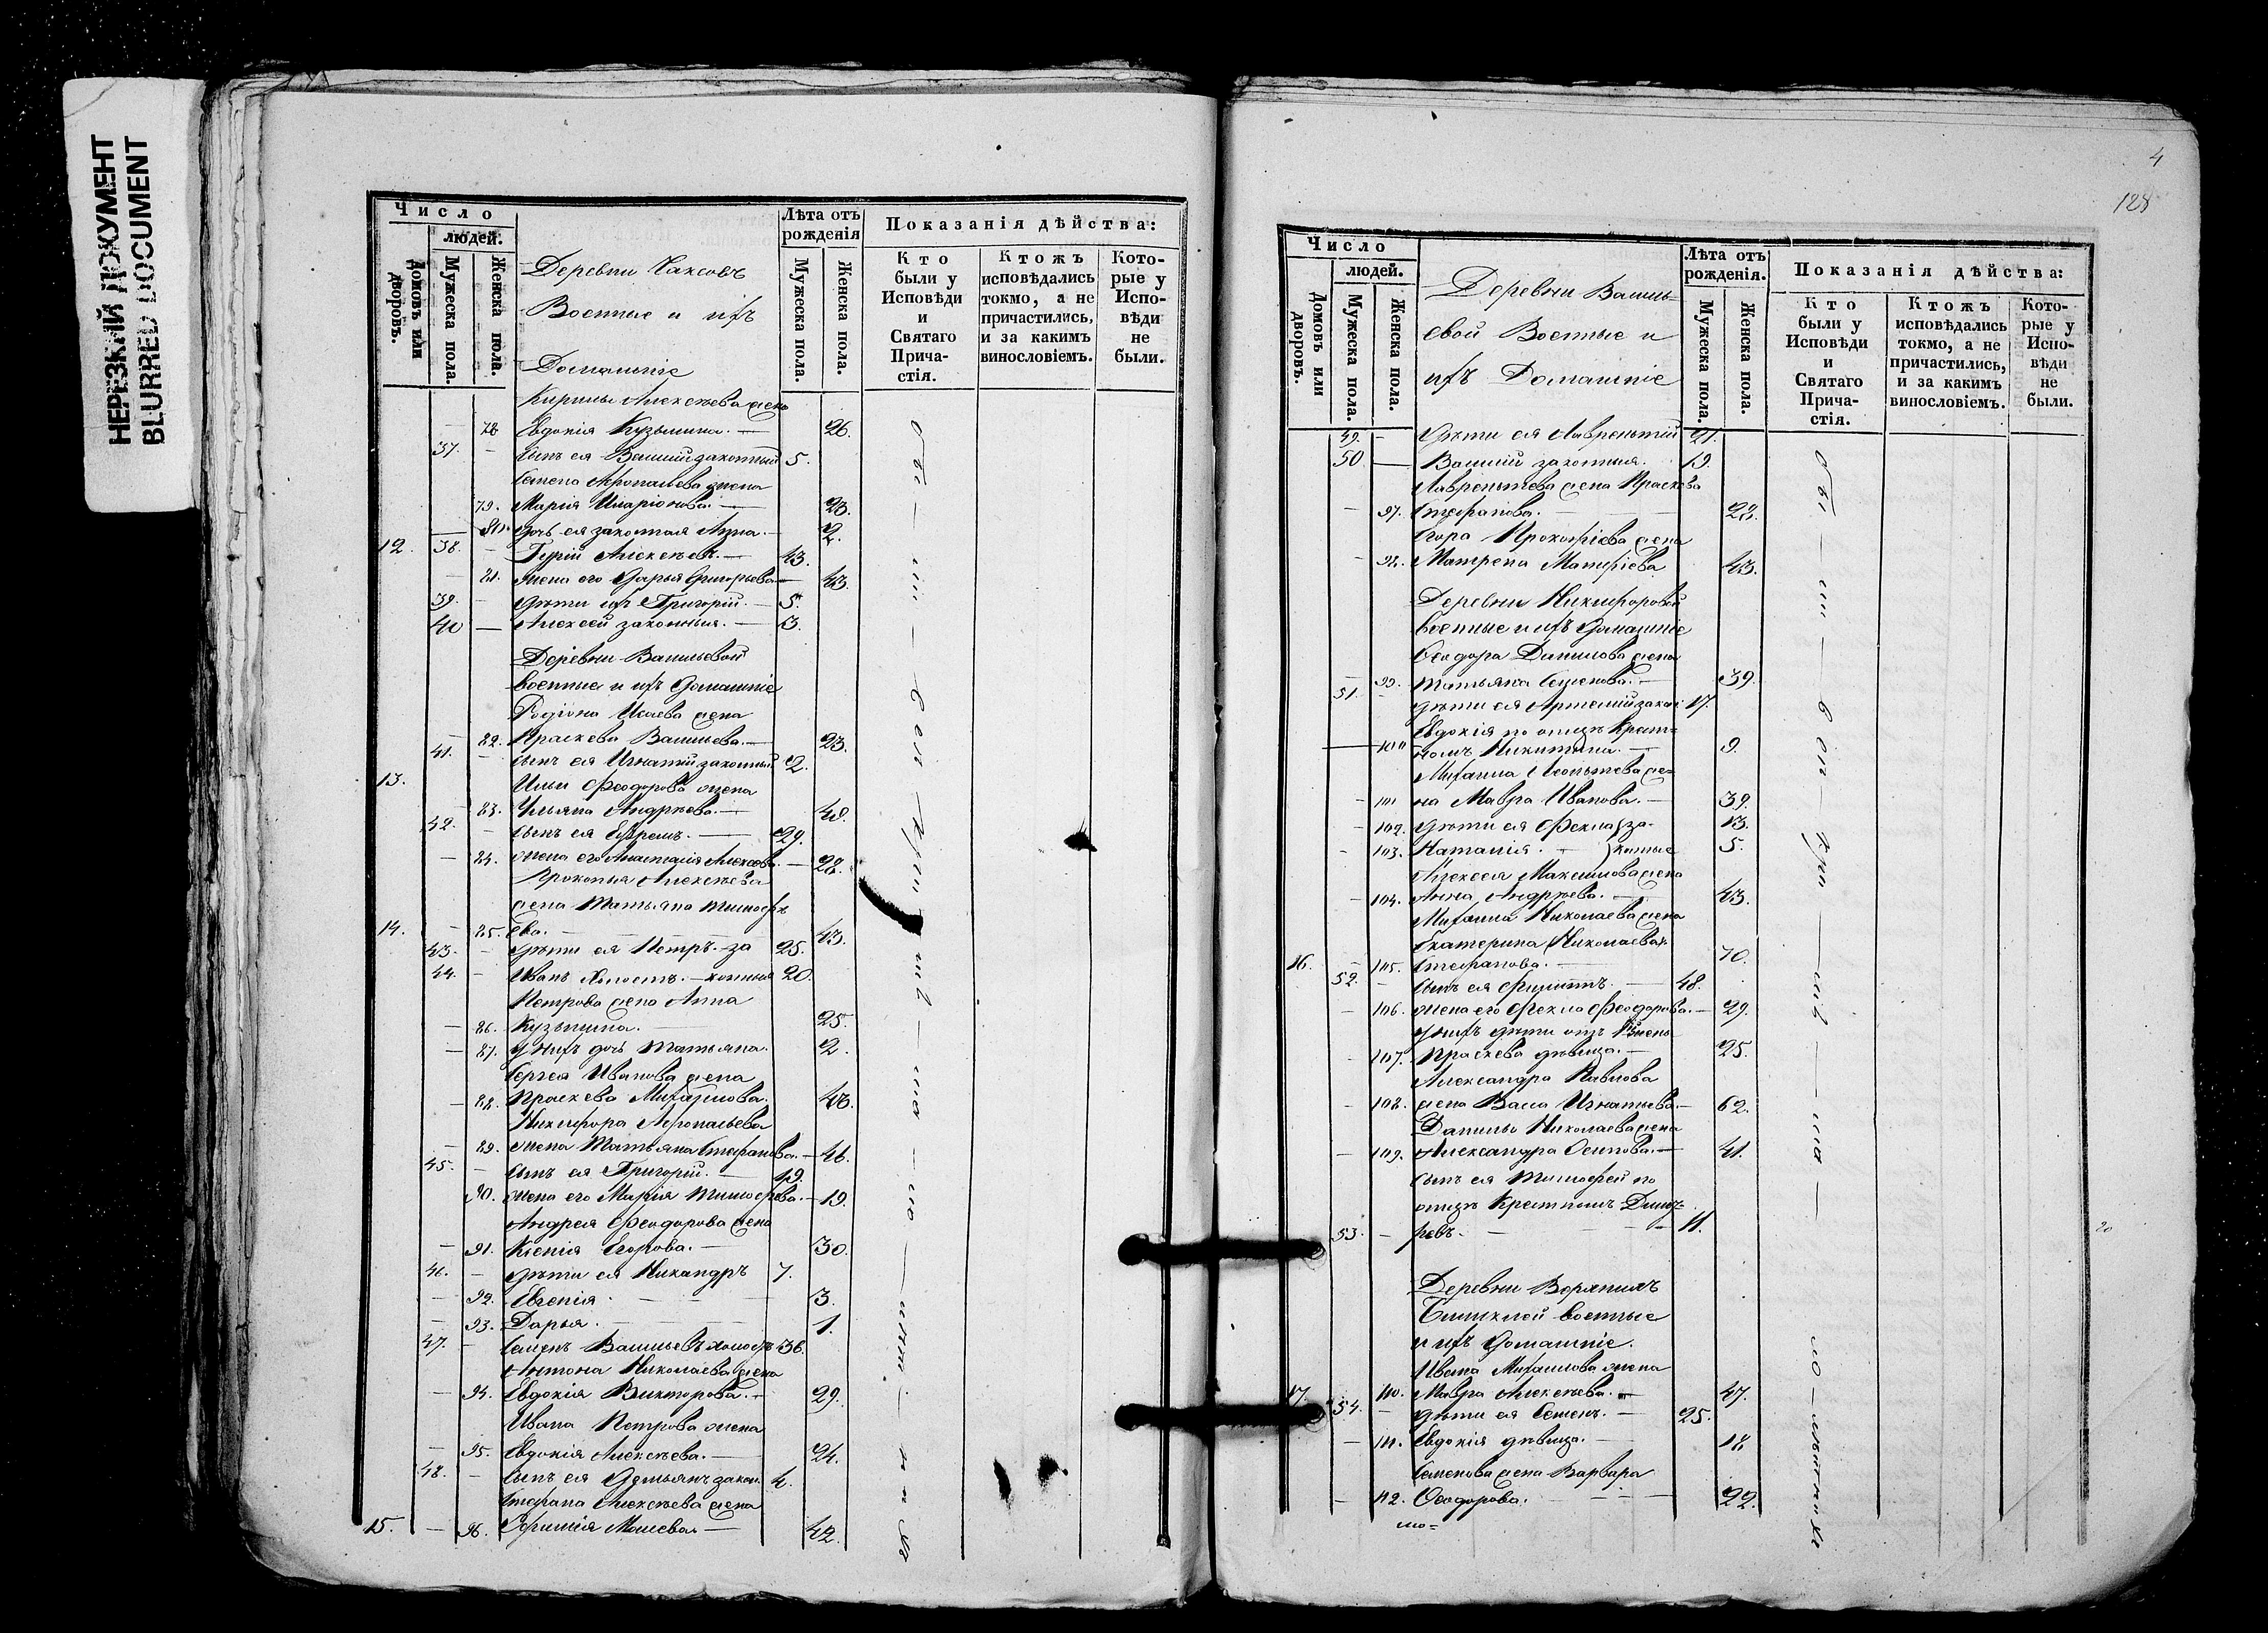 НЕРЕЗКИЙ ДОКУМЕНТ
BLURRED DOCUMENT
Число
людей.
Домовъ или дворовъ.
Мужеска пола.
Женска пола.
Деревни Чаксовъ
Военные и ихъ
Домашніе
Лѣта отъ рожденія
Мужеска пола.
Женска пола.
Показанія дѣйства:
Кто были у Исповѣди и Святаго Причастія.
Ктожъ исповѣдались токмо, а не причастились, и за какимъ винословіемъ.
Которые у Исповѣди не были.
Алексѣева жена
78 Евдокія Кузьмина. 26.
37. сынъ ея Василій законный 5.
Семена Афонасьева жена
79. Марія Иларіонова. 23.
80. дочь ея законная Анна. 2.
12. 38. Гурій Алексѣевъ. 43.
81. жена его Дарья Григорьева 43.
39. дѣти ихъ Григорій. 5.
40 Алексей законныя. 3.
Деревни Васильевой
военные и ихъ домашніе
Родіона Исаева жена
82. Праскева Васильева. 23.
41. сынъ ея Игнатій законный 2.
13. Ильи Феодорова жена
83. Ульяна Андрѣева. 48.
42. сынъ ея Ефремъ. 29.
84. жена его Анастасія Алексѣева. 28.
Прокопья Алексѣева
жена Татьяна Тимофѣ
14. 85. ева. 43.
43. дѣти ея Петръ за 25.
44. Иванъ холостъ. конныя 20.
Петрова жена Анна
86. Кузьмина. 25.
87. у нихъ дочь Татьяна. 2.
Сергея Иванова жена
88. Праскева Михайлова. 48.
Никифора Афонасьева
89. жена Татьяна Стефанова. 46.
45. сынъ ея Григорій. 19.
90. жена его Марія Тимофеева. 19.
Андрея Феодорова жена
91. Ксенія Егорова. 30.
46. дѣти ея Никандръ 7.
92. Евгенія 3.
93. Дарья. 1.
47. Семенъ Васильевъ холостъ 36.
Антона Николаева жена
94. Евдокія Викторова. 29.
Ивана Петрова жена
95. Евдокія Алексѣева. 24.
48. сынъ ея Демьянъ закон. 4.
Стефана Алексѣева жена
15. 96. Моисеева 42.
4
128
Число
людей.
Домовъ или дворовъ.
Мужеска пола.
Женска пола.
Деревни Василь-
евой Военные и
ихъ Домашніе
Лѣта отъ рожденія.
Мужеска пола.
Женска пола.
Показанія дѣйства:
Кто были у Исповѣди и Святаго Причастія.
Ктожъ исповѣдались токмо, а не причастились, и за какимъ винословіемъ.
Которые у Исповѣди не были.
49. дѣти ея Лаврентій 21.
50. Василій законныя. 19.
Лаврентьева жена Праскева
97. Стефанова. 22.
Егора Прокофіева жена
98. Матрена Матфіева 43.
Деревни Никифоровой
военные и ихъ домашніе
Феодора Данилова жена
99. Татьяна Семенова. 39.
51. дѣти ея Артемій закон: 17.
Евдокія по отцѣ Крест-
100 номъ Никитина. 9.
Михаила Леонтьева же-
101 на Мавра Иванова. 39.
102. дѣти ея Фекла за- 13.
103. Наталія. конные 5.
Алексея Максимова жена
104. Анна Андрѣева. 43.
Михаила Николаева жена
Екатерина Николаева
16. 105. Стефанова. 70.
52. сынъ ея Филиппъ. 48.
106. жена его Фекла Феодорова. 29.
у нихъ дѣти отъ
107. Праскева дѣвица. 25.
Александра Павлова
108. жена Васса Игнатьева. 62.
Данилы Николаева жена
109. Александра Осипова. 41.
сынъ ея Тимофей по
отцѣ Крестномъ
53. ревъ. 11.
20
Деревни
военные
и ихъ домашніе.
Ивана Михаилова жена
17. 110. Мавра Алексѣева. 47.
54. дѣти ея Семенъ. 25.
111. Евдокія дѣвица. 18
Семенова жена Варвара
112. Феодорова. 22.